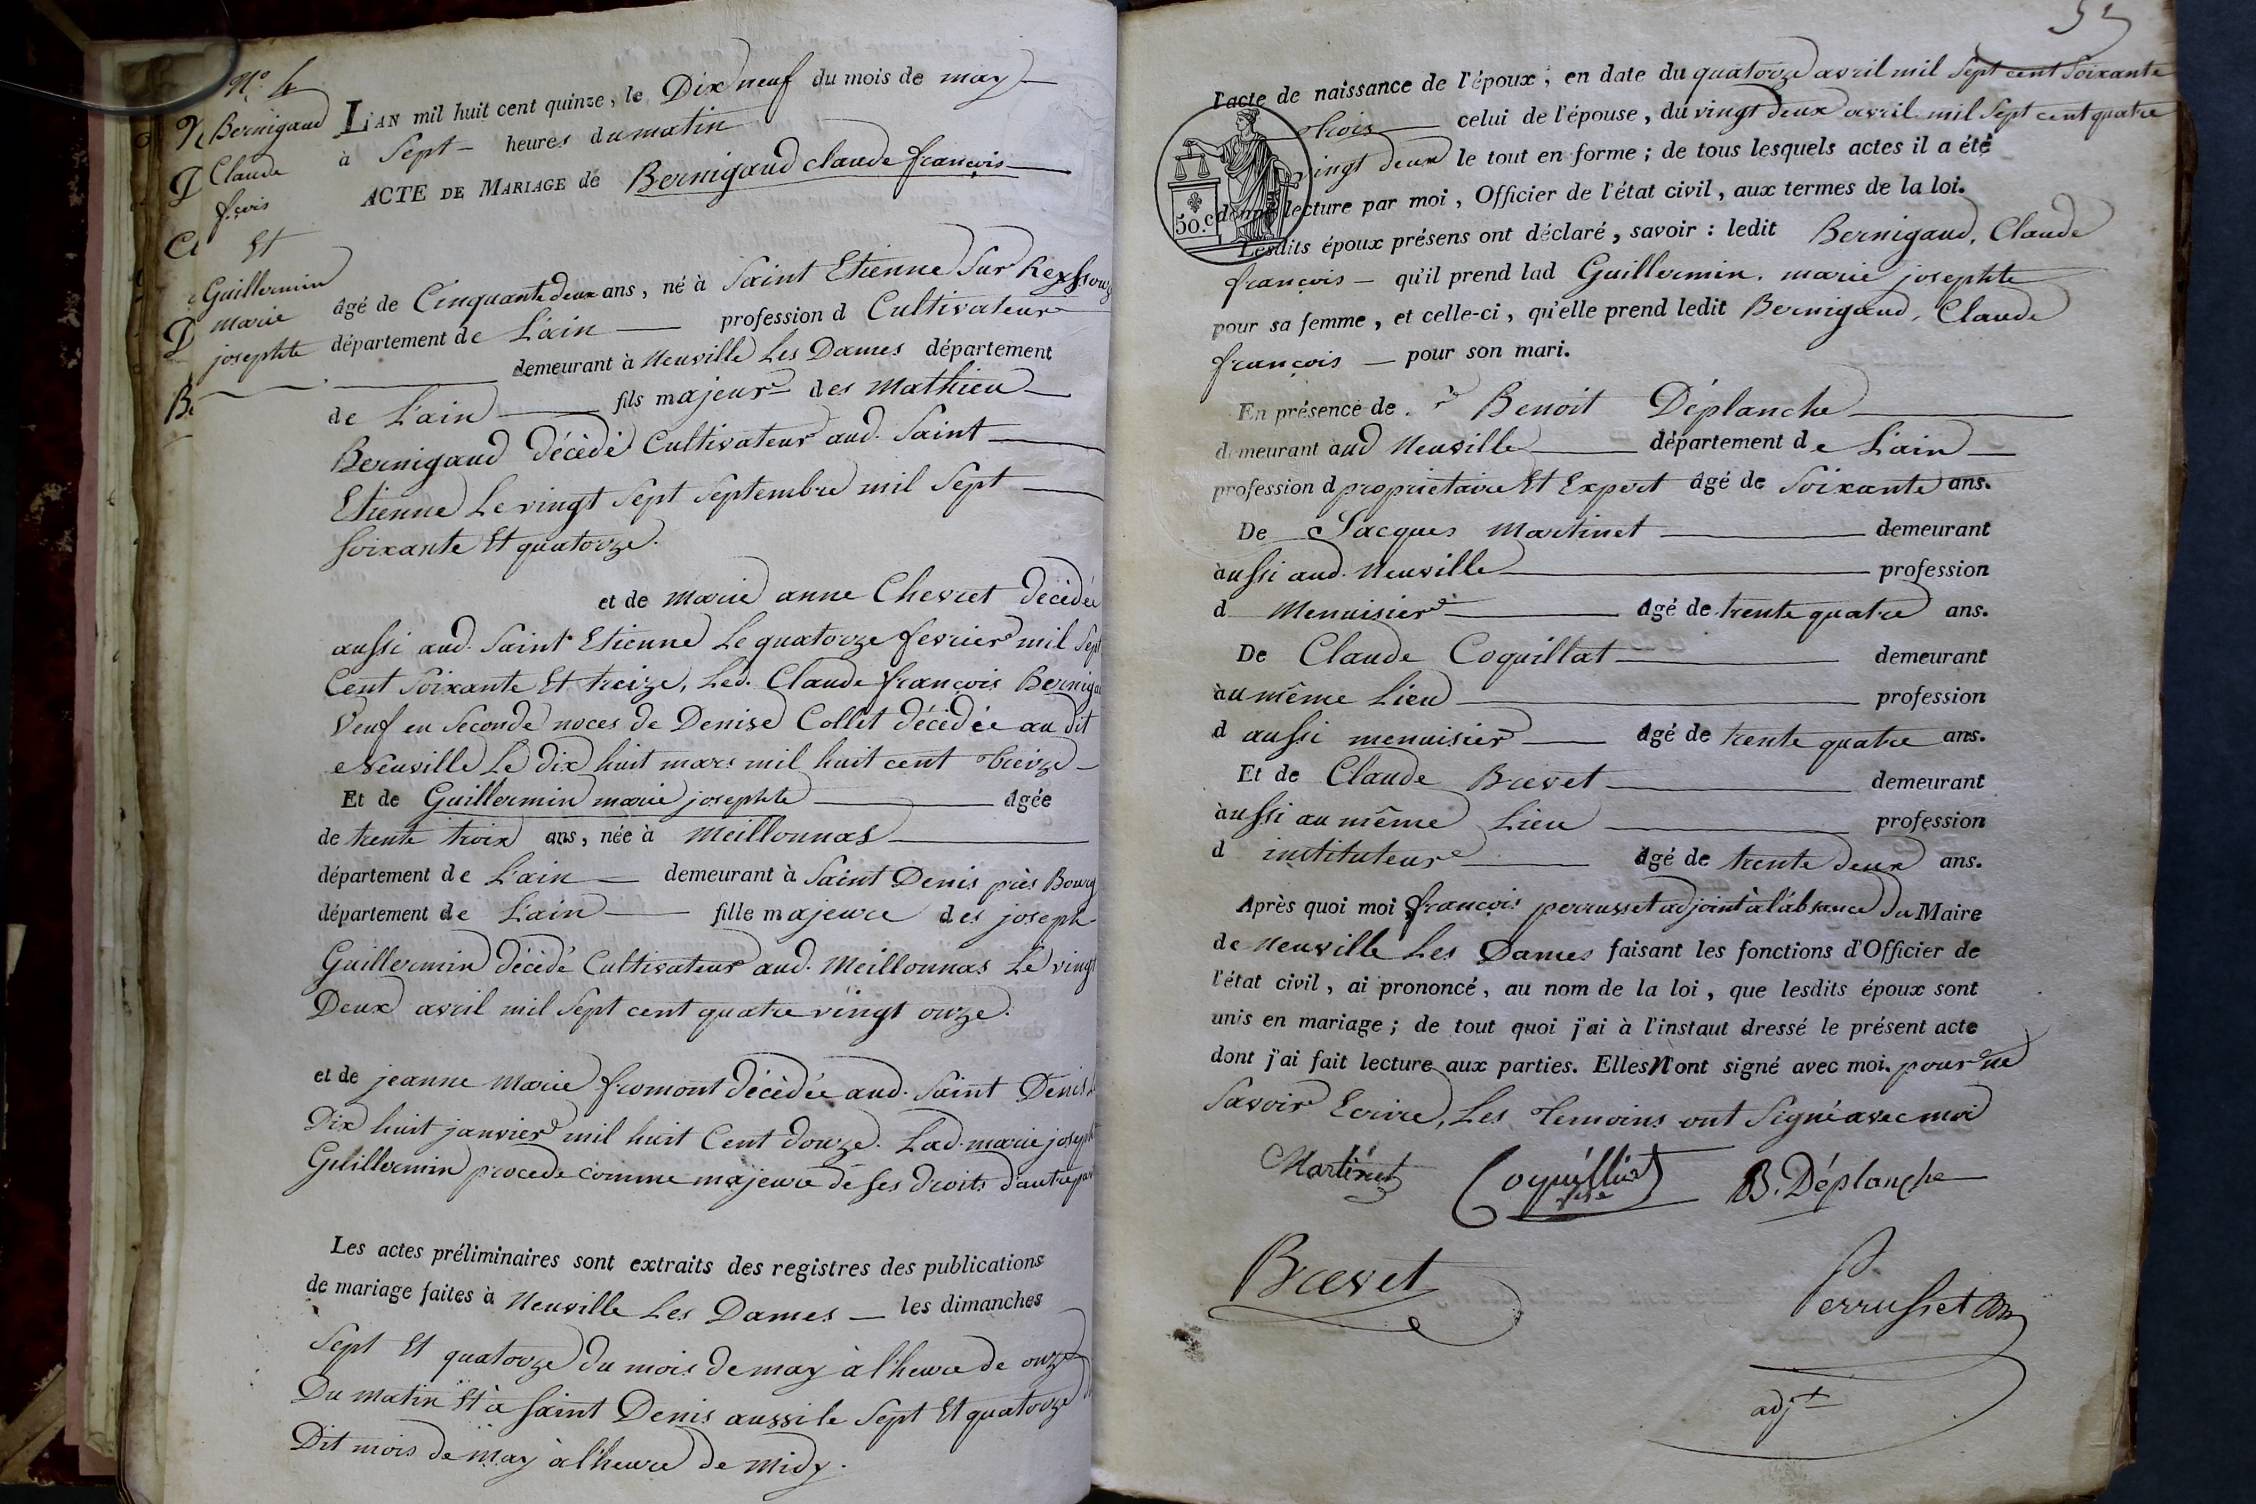 N.º 4
Bernigaud
Claude
f.çois
Et
Guillermin
marie
josephte
L'AN mil huit cent quinze, le Dix neuf du mois de may
à Sept heures du matin
ACTE DE MARIAGE de Bernigaud claude françois
âgé de Cinquante deux ans, né à Saint Etienne Sur Reyssouze
département de L'ain profession d Cultivateur
demeurant à Neuville Les Dames département
de L'ain fils majeur des Mathieu
Bernigaud décèdé Cultivateur aud. Saint
Etienne Le vingt Sept Septembre mil Sept
Soixante Et quatorze.
et de marie anne Chevret décèdée
aussi aud. Saint Etienne Le quatorze fevrier mil Sept
Cent Soixante Et treize, Led. Claude françois Bernigau
Veuf en Seconde noces de Denise Collet décèdée au dit
Neuville Le dix huit mars mil huit cent treize
Et de Guillermin marie josephte âgée
de trente trois ans, née à Meillonnas
département de L'ain demeurant à Saint Denis près Bourg
département de L'ain fille majeure des joseph
Guillermin décèdé Cultivateur aud. Meillonnas Le vingt
Deux avril mil Sept cent quatre vingt onze.
et de jeanne Marie fromont décèdée aud. Saint Denis
Dix huit janvier mil huit Cent douze. Lad. marie josephte
Guillermin procede comme majeure de ses droits d'autre part
Les actes préliminaires sont extraits des registres des publications
de mariage faites à Neuville Les Dames les dimanches
Sept Et quatorze du mois de may à l'heure de onze
Du matin Et à Saint Denis aussi le Sept Et quatorze
Dit mois de may à l'heure de midy.
52
l'acte de naissance de l'époux, en date du quatorze avril mil Sept cent Soixante
trois celui de l'épouse, du vingt deux avril mil Sept cent quatre
vingt deux le tout en forme ; de tous lesquels actes il a été
donné lecture par moi, Officier de l'état civil, aux termes de la loi.
50.c
Lesdits époux présens ont déclaré, savoir : ledit Bernigaud, Claude
françois qu'il prend lad Guillermin, marie josephte
pour sa femme, et celle-ci, qu'elle prend ledit Bernigaud, Claude
françois pour son mari.
En présence de Benoit Déplanche
demeurant aud Neuville département de L'ain
profession d proprietaire Et Expert âgé de Soixante ans.
De Jacques Martinet demeurant
aussi aud. Neuville profession
d Menuisier âgé de trente quatre ans.
De Claude Coquillat demeurant
au même Lieu profession
d aussi menuisier âgé de trente quatre ans.
Et de Claude Brevet demeurant
aussi au même Lieu profession
d instituteur âgé de trente deux ans.
Après quoi moi françois perrusset adjoint à l'absance du Maire
de Neuville Les Dames faisant les fonctions d'Officier de
l'état civil, ai prononcé, au nom de la loi, que lesdits époux sont
unis en mariage ; de tout quoi j'ai à l'instaut dressé le présent acte
dont j'ai fait lecture aux parties. Elles N'ont signé avec moi. pour ne
Savoir Ecrire, Les Temoins ont Signé avec moi
Martinet Coquilliat B. Déplanche
Brevet
Perrusset
adj.t